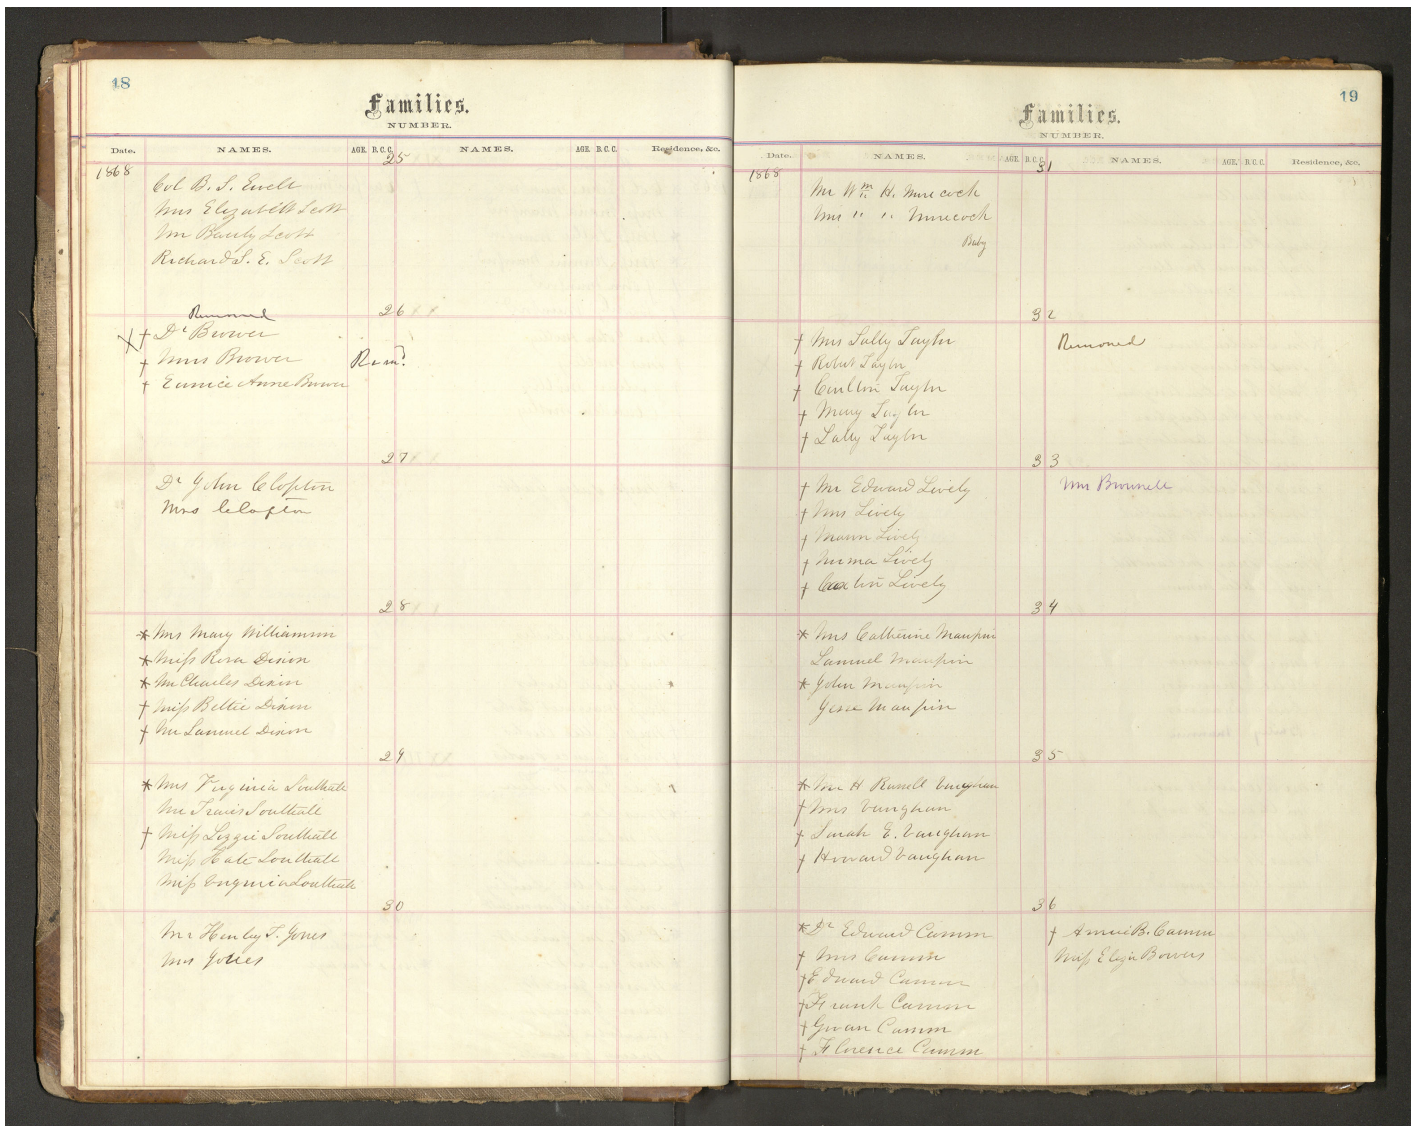 18
Families.
NUMBER.
Date. NAMES. AGE. B.C.C. NAMES. AGE. B.C.C. Residence, &c.
1868
25
Col B. S. Ewell
Mrs Elizabeth Scott
Mr Scott
Richard S. E. Scott
26
Removed
† Dr Brower
† Mrs Brower Remd.
† Eunice Anne Brower
27
Dr John Clopton
Mrs Clopton
28
* Mrs Mary Williamson
* Miss Rosa Dixon
* Mr Charles Dixon
† Miss Bettie Dixon
† Mr Samuel Dixon
29
* Mrs Virginia Southall
Mr Travis Southall
† Miss Lizzie Southall
Miss Kate Southall
Miss Virginia Southall
30
Mr Henley T. Jones
Mrs Jones
19
Families.
NUMBER.
Date. NAMES. AGE. B.C.C. NAMES. AGE. B.C.C. Residence, &c.
1868
31
Mr Wm H. Morecock
Mrs " " Morecock
Baby
32
† Mrs Sally Taylor Removed
† Robert Taylor
† Carlton Taylor
† Mary Taylor
† Sally Taylor
33
† Mr Edward Lively Mrs Brownell
† Mrs Lively
† Mann Lively
† Lively
† Lively
34
* Mrs Catherine Maupin
Samuel Maupin
* John Maupin
Jesse Maupin
35
* Mr H Russell Vaughan
† Mrs Vaughan
† Sarah E. Vaughan
† Howard Vaughan
36
* Dr Edward Camm † Annie B. Camm
† Mrs Camm Miss Eliza Bowers
† Edward Camm
† Frank Camm
† Camm
† Florence Camm